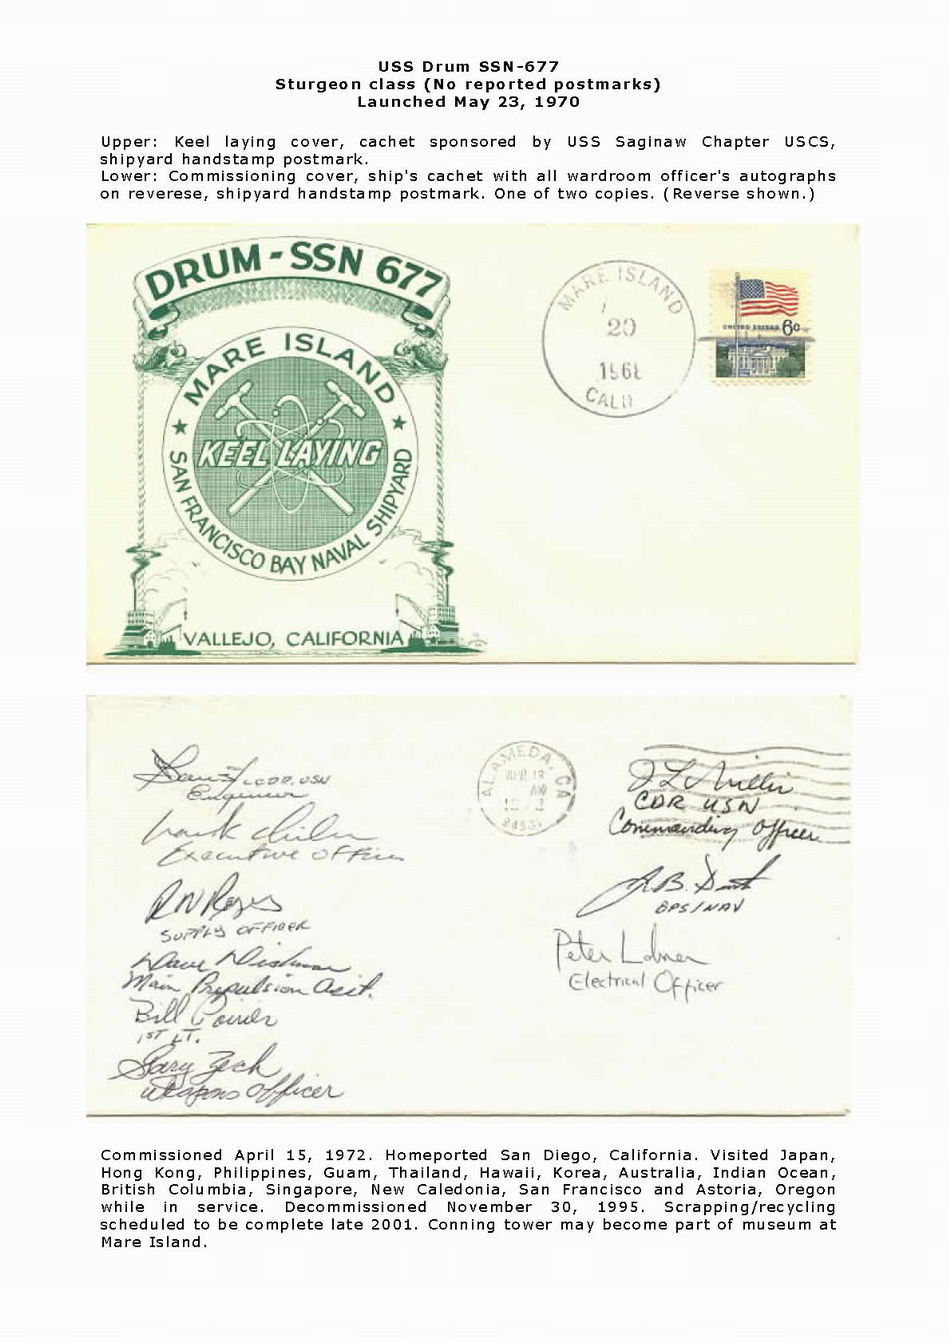 USS Drum SSN-677
Sturgeon class (No reported postmarks)
Launched May 23, 1970
Upper: Keel laying cover, cachet sponsored by USS Saginaw Chapter USCS,
shipyard handstamp postmark.
Lower: Commissioning cover, ship's cachet with all wardroom officer's autographs
on reverese, shipyard handstamp postmark. One of two copies. (Reverse shown.)
DRUM - SSN 677
MARE ISLAND
KEEL LAYING
SAN FRANCISCO BAY NAVAL SHIPYARD
VALLEJO, CALIFORNIA
MARE ISLAND
20
1968
CALIF
UNITED STATES 6c
LCDR, USN
Engineer
Executive Officer
RN Reyes
SUPPLY OFFICER
Dave
Main Propulsion Asst.
Bill Poirier
1ST LT.
Gary Zech
Weapons Officer
ALAMEDA, CA
APR 13
AM
J L Miller
CDR USN
Commanding Officer
OPS/NAV
Peter Lobner
Electrical Officer
Commissioned April 15, 1972. Homeported San Diego, California. Visited Japan,
Hong Kong, Philippines, Guam, Thailand, Hawaii, Korea, Australia, Indian Ocean,
British Columbia, Singapore, New Caledonia, San Francisco and Astoria, Oregon
while in service. Decommissioned November 30, 1995. Scrapping/recycling
scheduled to be complete late 2001. Conning tower may become part of museum at
Mare Island.